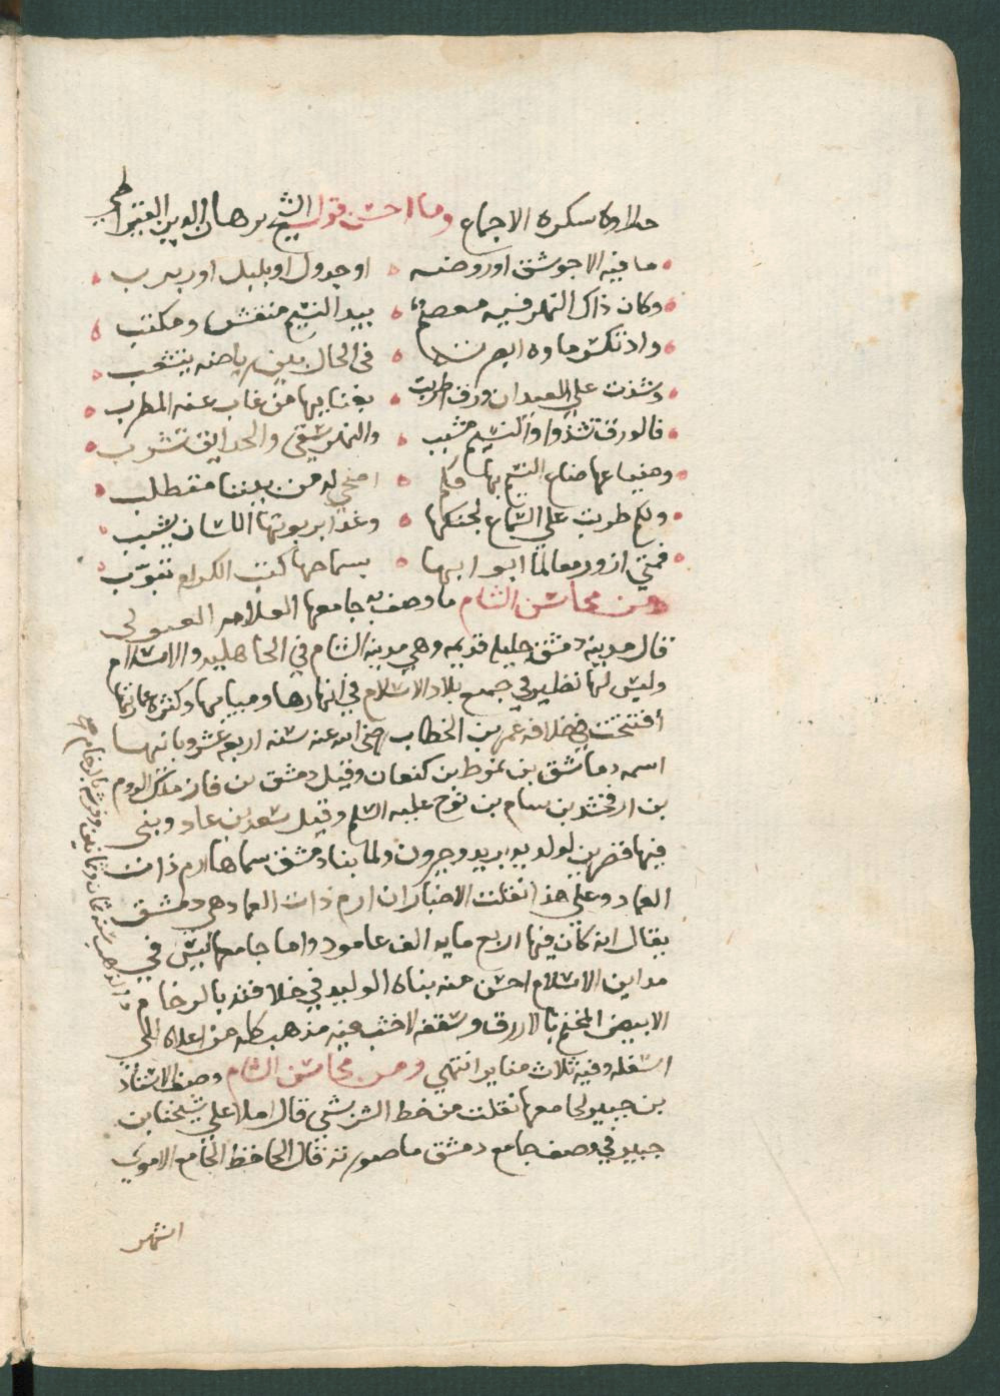 حلاوة سكره الاجماع وما احسن قول الشيخ برهان الدين القيراطي
ما فيه الا جوسق او روضه او جدول او بلبل او ربرب
وكان ذاك النهر فيه معصم بيد النسيم منقش ومكتب
واذا تكسر ماوه ابصرته في الحال بين رياضه يتشعب
وشدت على العيدان ورق اطربت بغنايها من غاب عنه المطرب
فالورق تشدوا والنسيم مشبب والنهر يسقي والحدايق تشرب
وضياعها ضاع النسيم بها فكم اضحى له من بيننا متطلب
ولكم طربت على السماع لجنكها وغدا بربوتها اللسان يشبب
فمتى ازور معالما ابوابها بسماحها كتب الكرام تبوب
ومن محاسن الشام ما وصف به جامعها العلامه
قال مدينة دمشق جليله قديمه وهي مدينة الشام في الجاهليه والاسلام
وليس لها نظير في جميع بلاد الاسلام في انهارها ومياهها وكثرة عمارتها
أفتتحت في خلافة عمر بن الخطاب رضي الله عنه سنه اربعه عشر وبانيها
اسمه دماشق بن نمرط بن كنعان وقيل دمشق بن فان ملك الروم
بن ارفخشد بن سام بن نوح عليه السلم وقيل شعد بن عاد وبنى
فيها قصرين لولديه بريد وجيرون ولما بنا دمشق سماها ارم ذات
العماد وعلى هذا نقلت الاخبار ان ارم ذات العماد هي دمشق
يقال انه كان فيها اربع مايه الف عامود واما جامعها ليس في
مداين الاسلام احسن منه بناه الوليد في خلافته بالرخام
الابيض المختم بالازرق وسقفه لا خشب فيه مذهب كله من اعلاه الى
اسفله وفيه ثلاث مناير انتهى ومن محاسن الشام وصف الاستاذ
بن جبير لجامعها نقلت من خط الشريشي قال املا علي شيخنا بن
جبير في وصف جامع دمشق ما صورته قال الحافظ الجامع الاموي
اشهر
والذهب سنه ثمان وثمانين وفرشه بالرخام صح